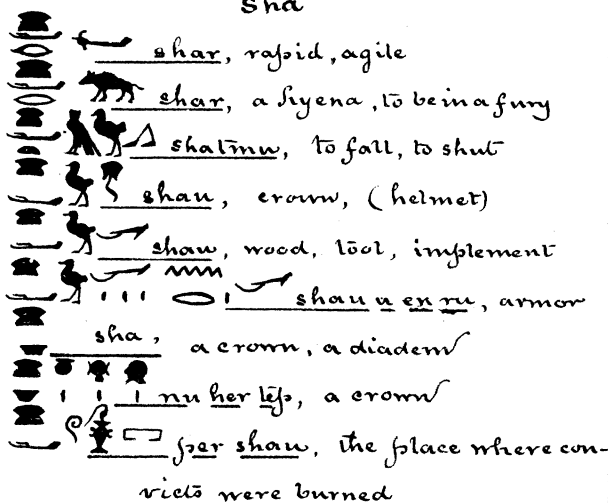 sha
shar, rapid, agile
shar, a hyena, to be in a fury
shatmu, to fall, to shut
shau, crown, (helmet)
shau, wood, tool, implement
shau u en ru, armor
sha, a crown, a diadem
nu her tep, a crown
per shau, the place where con-
victs were burned